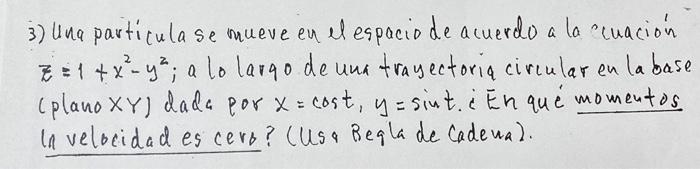 3) Una partícula se mueve en el espacio de acuerdo a la ecuación
z = 1 + x² - y²; a lo largo de una trayectoria circular en la base
(plano XY) dada por x = cost, y = sint. ¿ En qué momentos
la velocidad es cero? (Usa Regla de Cadena).